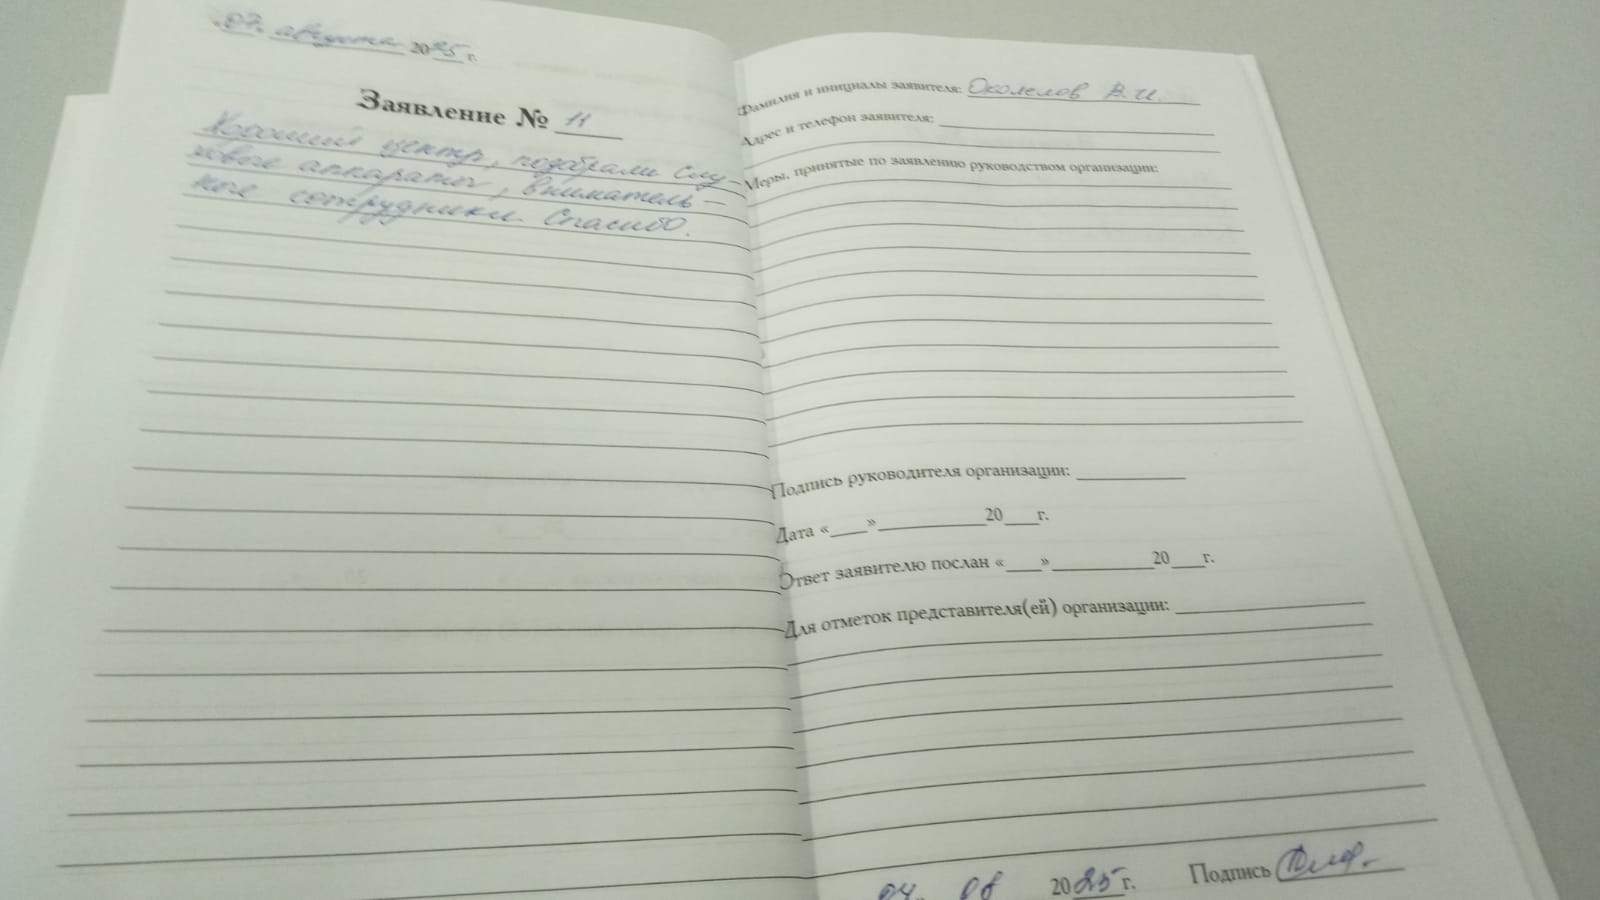 07. августа 2025 г.
Заявление № 11
Хороший центр, подобрали слу-
ховые аппараты, вниматель-
ные сотрудники. Спасибо.
Фамилия и инициалы заявителя: Околелов В.И.
Адрес и телефон заявителя:
Меры, принятые по заявлению руководством организации:
Подпись руководителя организации:
Дата «____»____________20____г.
Ответ заявителю послан «____»____________20____г.
Для отметок представителя(ей) организации:
08 2025 г. Подпись